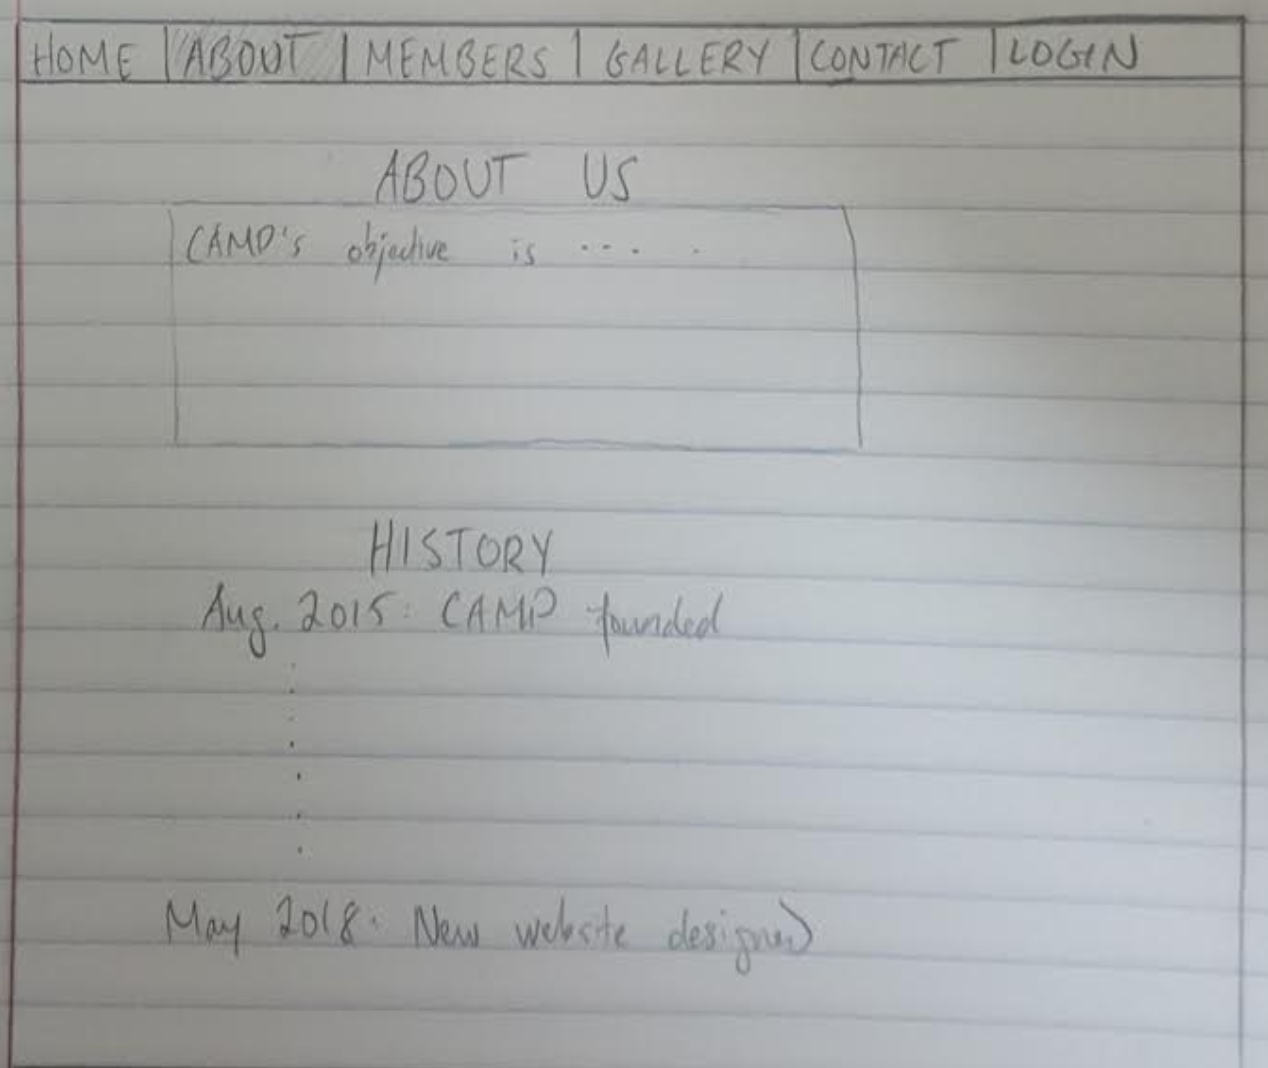 HOME | ABOUT | MEMBERS | GALLERY | CONTACT | LOGIN
ABOUT US
CAMP's objective is .... .
HISTORY
Aug. 2015: CAMP founded
May 2018: New website designed